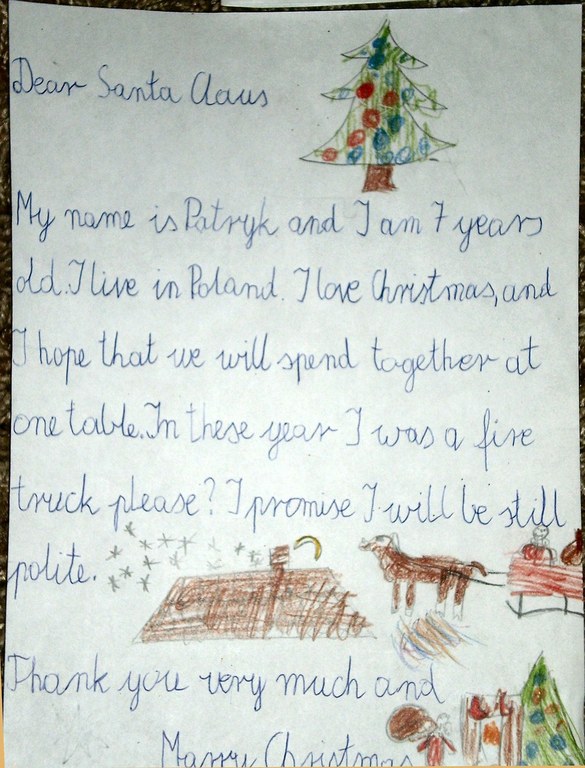 Dear Santa Claus
My name is Patryk and I am 7 years
old. I live in Poland. I love Christmas, and
I hope that we will spend together at
one table. In these year I was a fire
truck please? I promise I will be still
polite.
Thank you very much and
Marry Christmas